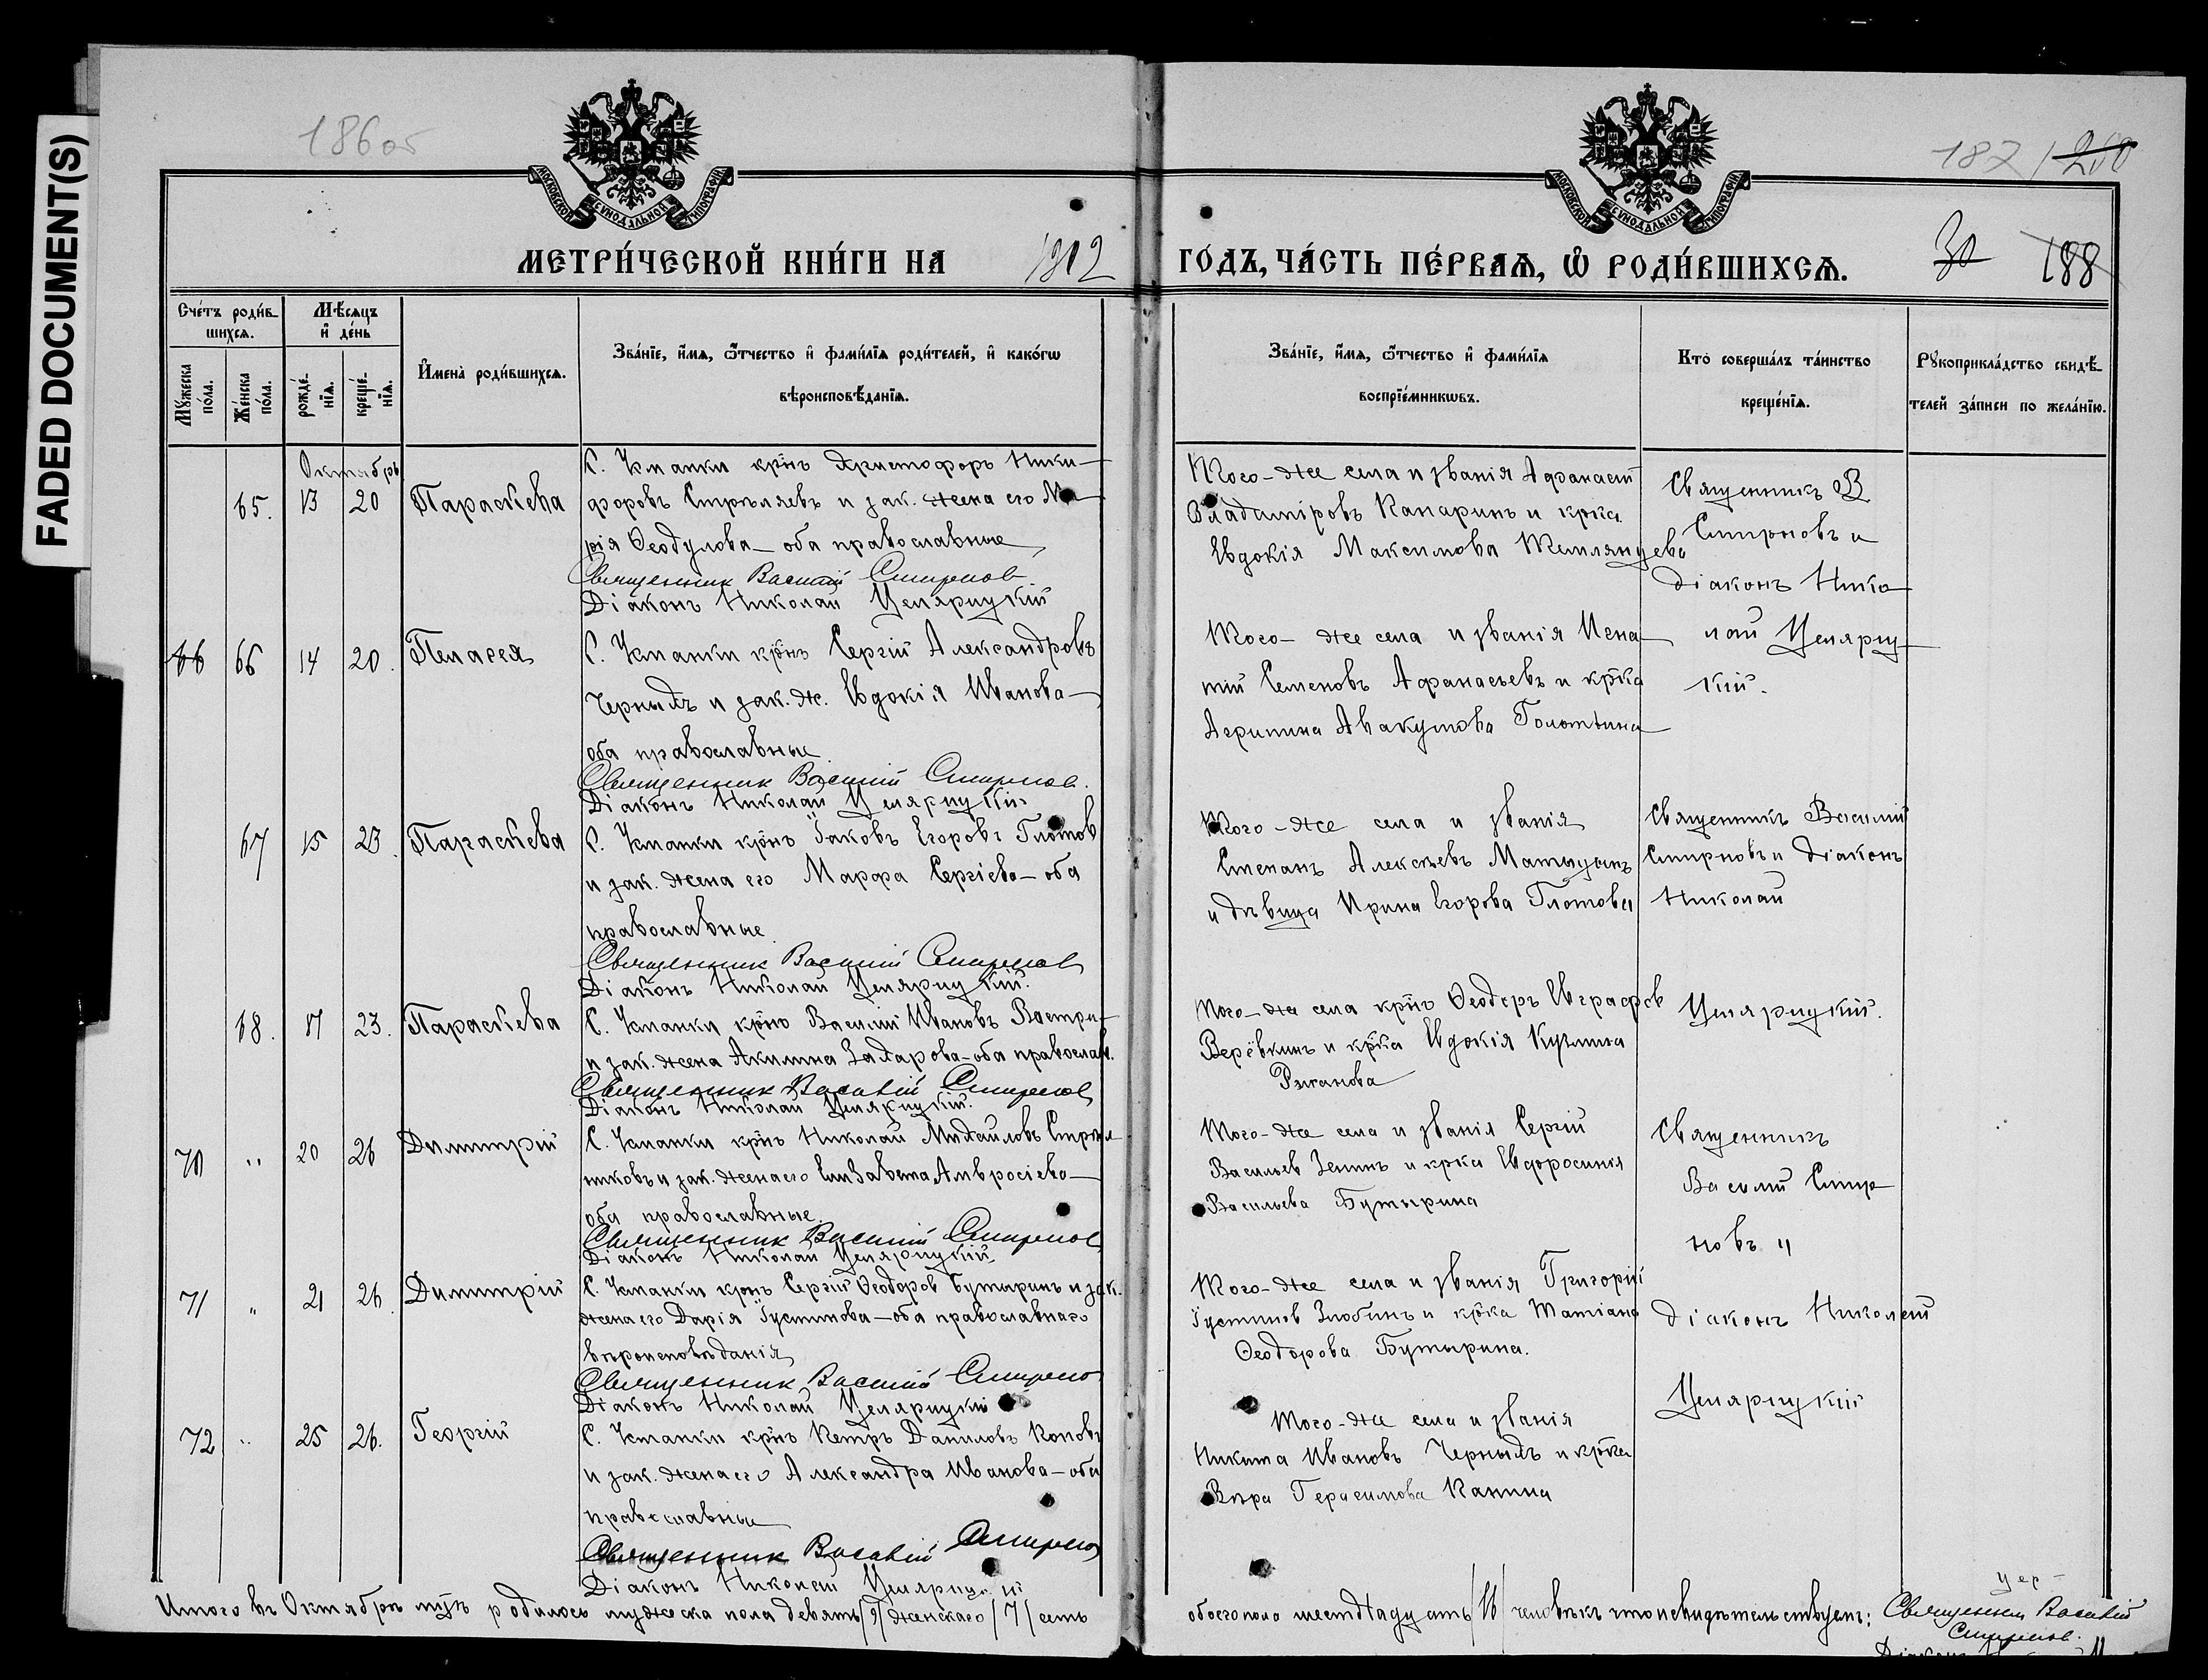 FADED DOCUMENT(S)
186об
187
МОСКОВСКОЙ СѴНОДАЛЬНОЙ ТИПОГРАФІИ
МОСКОВСКОЙ СѴНОДАЛЬНОЙ ТИПОГРАФІИ
МЕТРИ́ЧЕСКОЙ КНИ́ГИ НА 1902
ГО́ДЪ, ЧА́СТЬ ПЕ́РВАѦ, Ѡ҆ РОДИ́ВШИХСѦ.
30 188
Сче́тъ роди́в-
шихсѧ.
Мѣ́сѧцъ
и҆ де́нь
Мꙋ́жеска
по́ла.
Же́нска
по́ла.
рожде́-
нїѧ.
креще́-
нїѧ.
И҆мена̀ роди́вшихсѧ.
Зва́нїе, и҆́мѧ, ѻ҆́тчество и҆ фами́лїѧ роди́телей, и҆ како́гѡ
вѣроисповѣ́данїѧ.
Зва́нїе, и҆́мѧ, ѻ҆́тчество и҆ фами́лїѧ
воспрїе́мникѡвъ.
Кто̀ соверша́лъ та́инство
креще́нїѧ.
Рꙋкоприкла́дство свидѣ́-
телей за́писи по жела́нїю.
Октябрь
65. 13 20 Параскева
С. Усманки крнъ Христофоръ Ники-
форовъ Стрѣляевъ и зак. жена его Ма-
рія Ѳеодулова - оба православные
Священник Василій Смирнов.
Діаконъ Николай Целярицкій
Того-же села и званія Афанасій
Владиміровъ Капаринъ и крка
Евдокія Максимова Жемлянцева
Священникъ В
Смирновъ и
діаконъ Нико
лай Целяриц-
кій.
66 66 14 20. Пелагея
С. Усманки крнъ Сергій Александровъ
Черныхъ и зак. ж. Евдокія Иванова -
оба православные
Священник Василій Смирнов.
Діаконъ Николай Целярицкій
Того-же села и званія Игна-
тій Семеновъ Афанасьевъ и крка
Агрипина Авакумова Голотвина
67 15 23. Параскева
С. Усманки крнъ Іаковъ Егоровъ Глотов
и зак. жена его Марфа Сергіева - оба
православные
Священник Василій Смирнов
Діаконъ Николай Целярицкій.
Того-же села и званія
Степанъ Алексѣевъ Матыцинъ
и дѣвица Ирина Егорова Глотова
Священникъ Василій
Смирновъ и діаконъ
Николай
Целярицкій.
68. 17 23. Параскева
С. Усманки крнъ Василій Ивановъ Востри-
и зак. жена Акилина Захарова - оба православ.
Священник Василій Смирнов
Діаконъ Николай Целярицкій.
Того-же села крнъ Ѳеодоръ Евграфов
Верёвкинъ и крка Евдокія Кузмина
Рыжанова
70 " 20 26 Димитрій
С. Усманки крнъ Николай Михайловъ Стрѣл-
никовъ и зак. жена его Елизавета Амвросіева -
оба православные.
Священник Василій Смирнов
Діаконъ Николай Целярицкій
Того-же села и званія Сергій
Васильев Зенинъ и крка Евфросинія
Васильева Бутырина
Священникъ
Василій Смир
новъ и
діаконъ Николай
Целярицкій
71 " 21 26. Димитрій
С. Усманки крнъ Сергій Ѳеодоров Бутыринъ и зак.
жена его Дарія Іустинова - оба православнаго
вѣроисповѣданія
Священник Василій Смирнов
Діаконъ Николай Целярицкій
Того-же села и званія Григорій
Іустинов Злобинъ и крка Татіана
Ѳеодорова Бутырина.
72 " 25 26. Георгій
С. Усманки крнъ Петръ Даниловъ Поповъ
и зак. жена его Александра Иванова - оба
православные
Священник Василій Смирнов
Діаконъ Николай Целярицкій
Того-же села и званія
Никита Ивановъ Черныхъ и крка
Вѣра Герасимова Канина
Итого въ Октябрѣ мцѣ родилось мужеска пола девять /9/ женскаго /7/ семь
обоего пола шестнадцать /16/ человѣкъ что и свидѣтельствуемъ: Священник Василій
Смирнов.